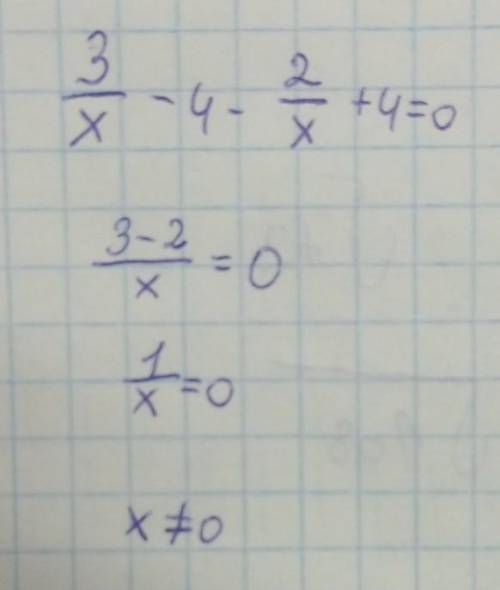 3/x - 4 - 2/x + 4 = 0
3-2/x = 0
1/x = 0
x ≠ 0